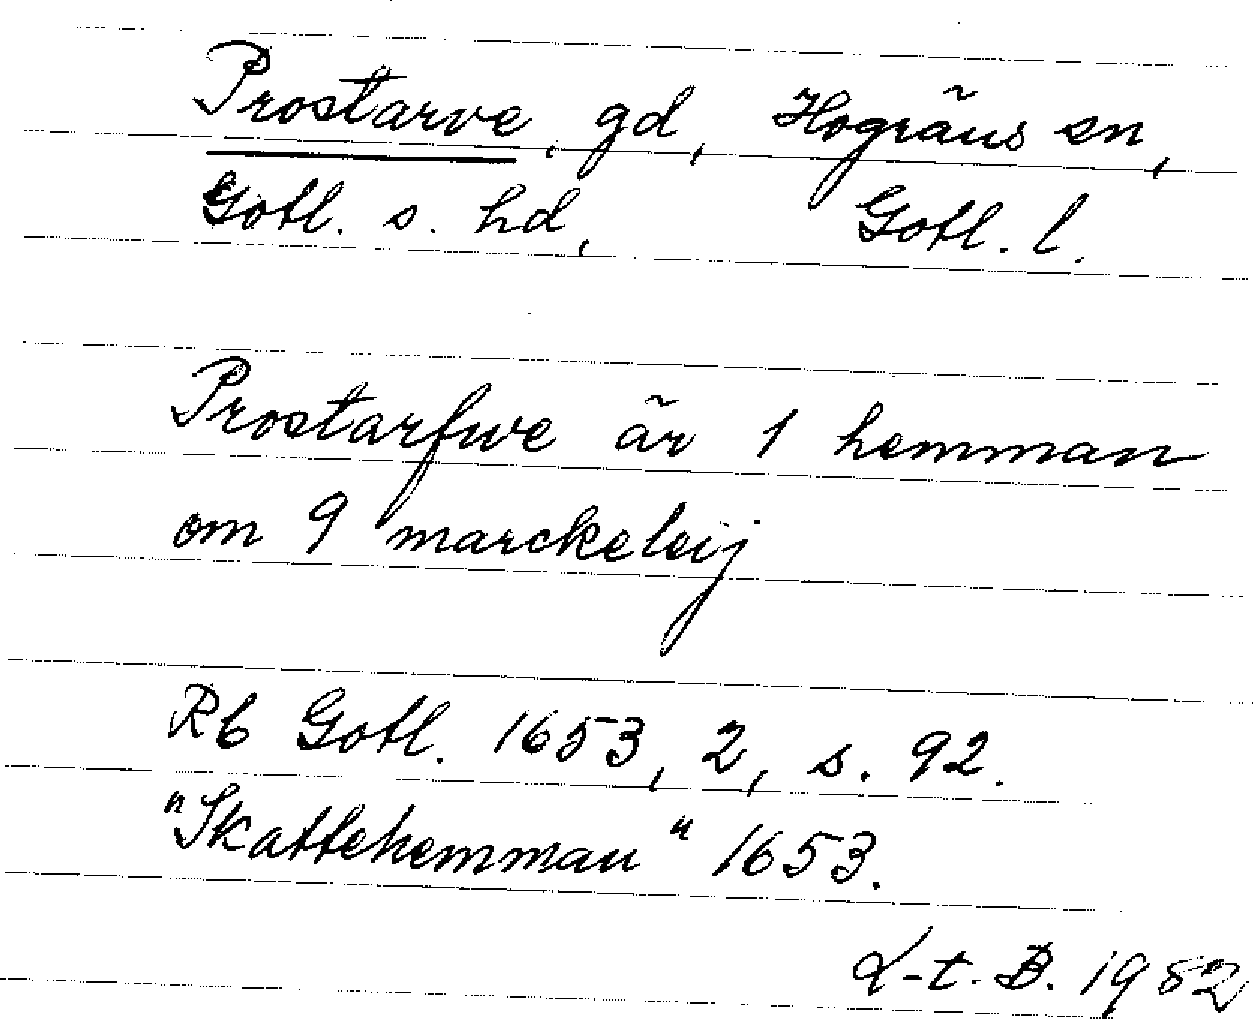 Prostarve, gd, Hogräns sn,
Gotl. s. hd, Gotl. l.
Prostarfwe är 1 hemman
om 9 marckeleij
Rb Gotl. 1653, 2, s. 92.
"Skattehemman" 1653.
L-t. B. 1952